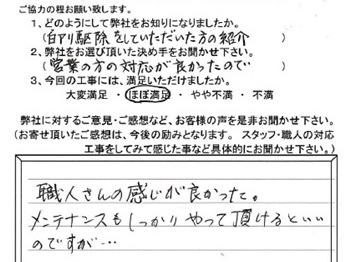 ご協力の程お願い致します。
1、どのようにして弊社をお知りになりましたか。
(白アリ駆除をしていただいた方の紹介)
2、弊社をお選び頂いた決め手をお聞かせ下さい。
(営業の方の対応が良かったので)
3、今回の工事には、満足いただけましたか。
大変満足 ・ ほぼ満足 ・ やや不満 ・ 不満
弊社に対するご意見・ご感想など、お客様の声を是非お聞かせ下さい。
(お寄せ頂いたご感想は、今後の励みとなります。 スタッフ・職人の対応
工事をしてみて感じた事など具体的にお聞かせ下さい。)
職人さんの感じが良かった。
メンテナンスもしっかりやって頂けるといい
のですが…